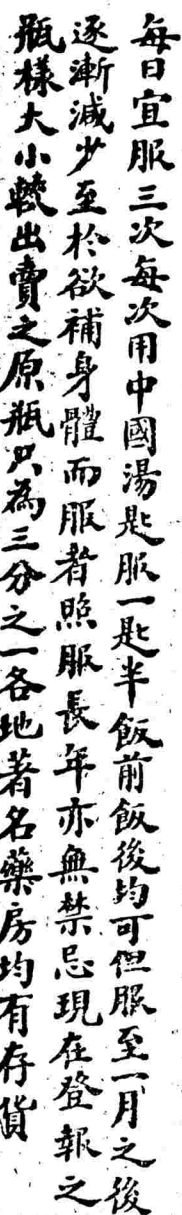 每日宜服三次每次用中國湯匙服一匙半飯前飯後均可但服至一月之後
逐漸減少至於欲補身體而服者照服長年亦無禁忌現在登報之
瓶樣大小較出賣之原瓶只為三分之一各地著名藥房均有存貨